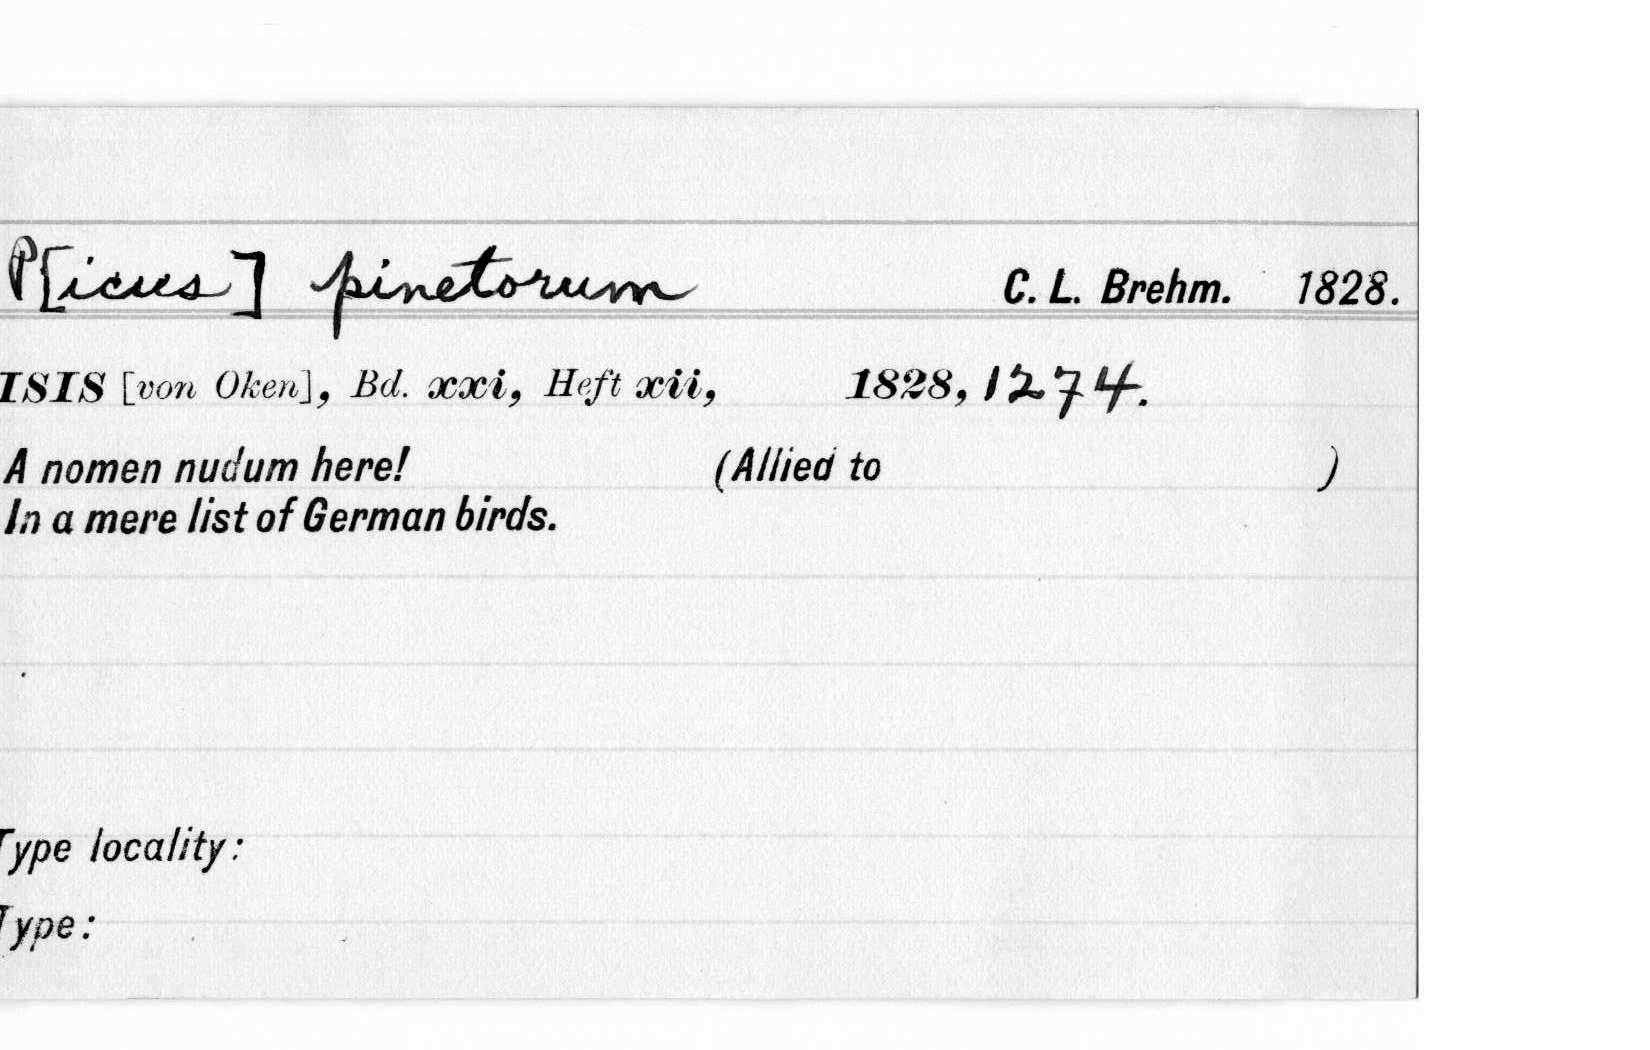 P[icus] pinetorum C. L. Brehm. 1828.
ISIS [von Oken], Bd. xxi, Heft xii, 1828, 1274.
A nomen nudum here! (Allied to )
In a mere list of German birds.
Type locality:
Type: